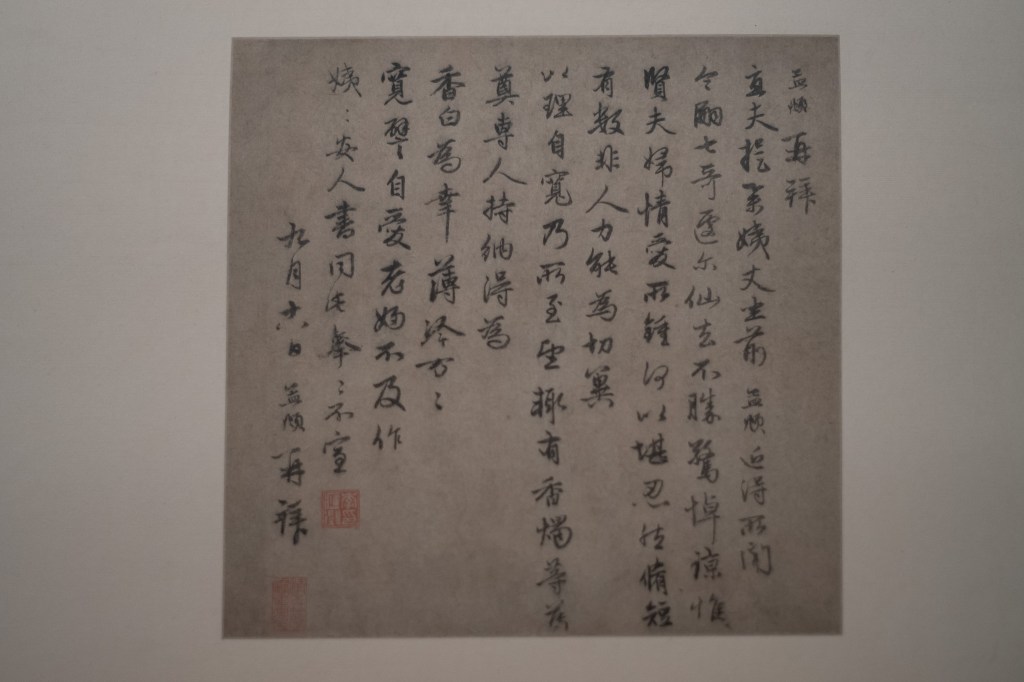 益順再拜
直夫提幹姨丈坐前益順近得所聞
令嗣七哥遽尔仙去不勝驚悼諒惟
賢夫婦情愛所鍾何以堪忍然脩短
有數非人力能為切冀
以理自寬乃所至望輙有香燭等茲
奠專人持納得為
香白為幸薄輕万々
寬譬自愛老婦不及作
姨々安人書同此拳々不宣
九月十八日益順再拜